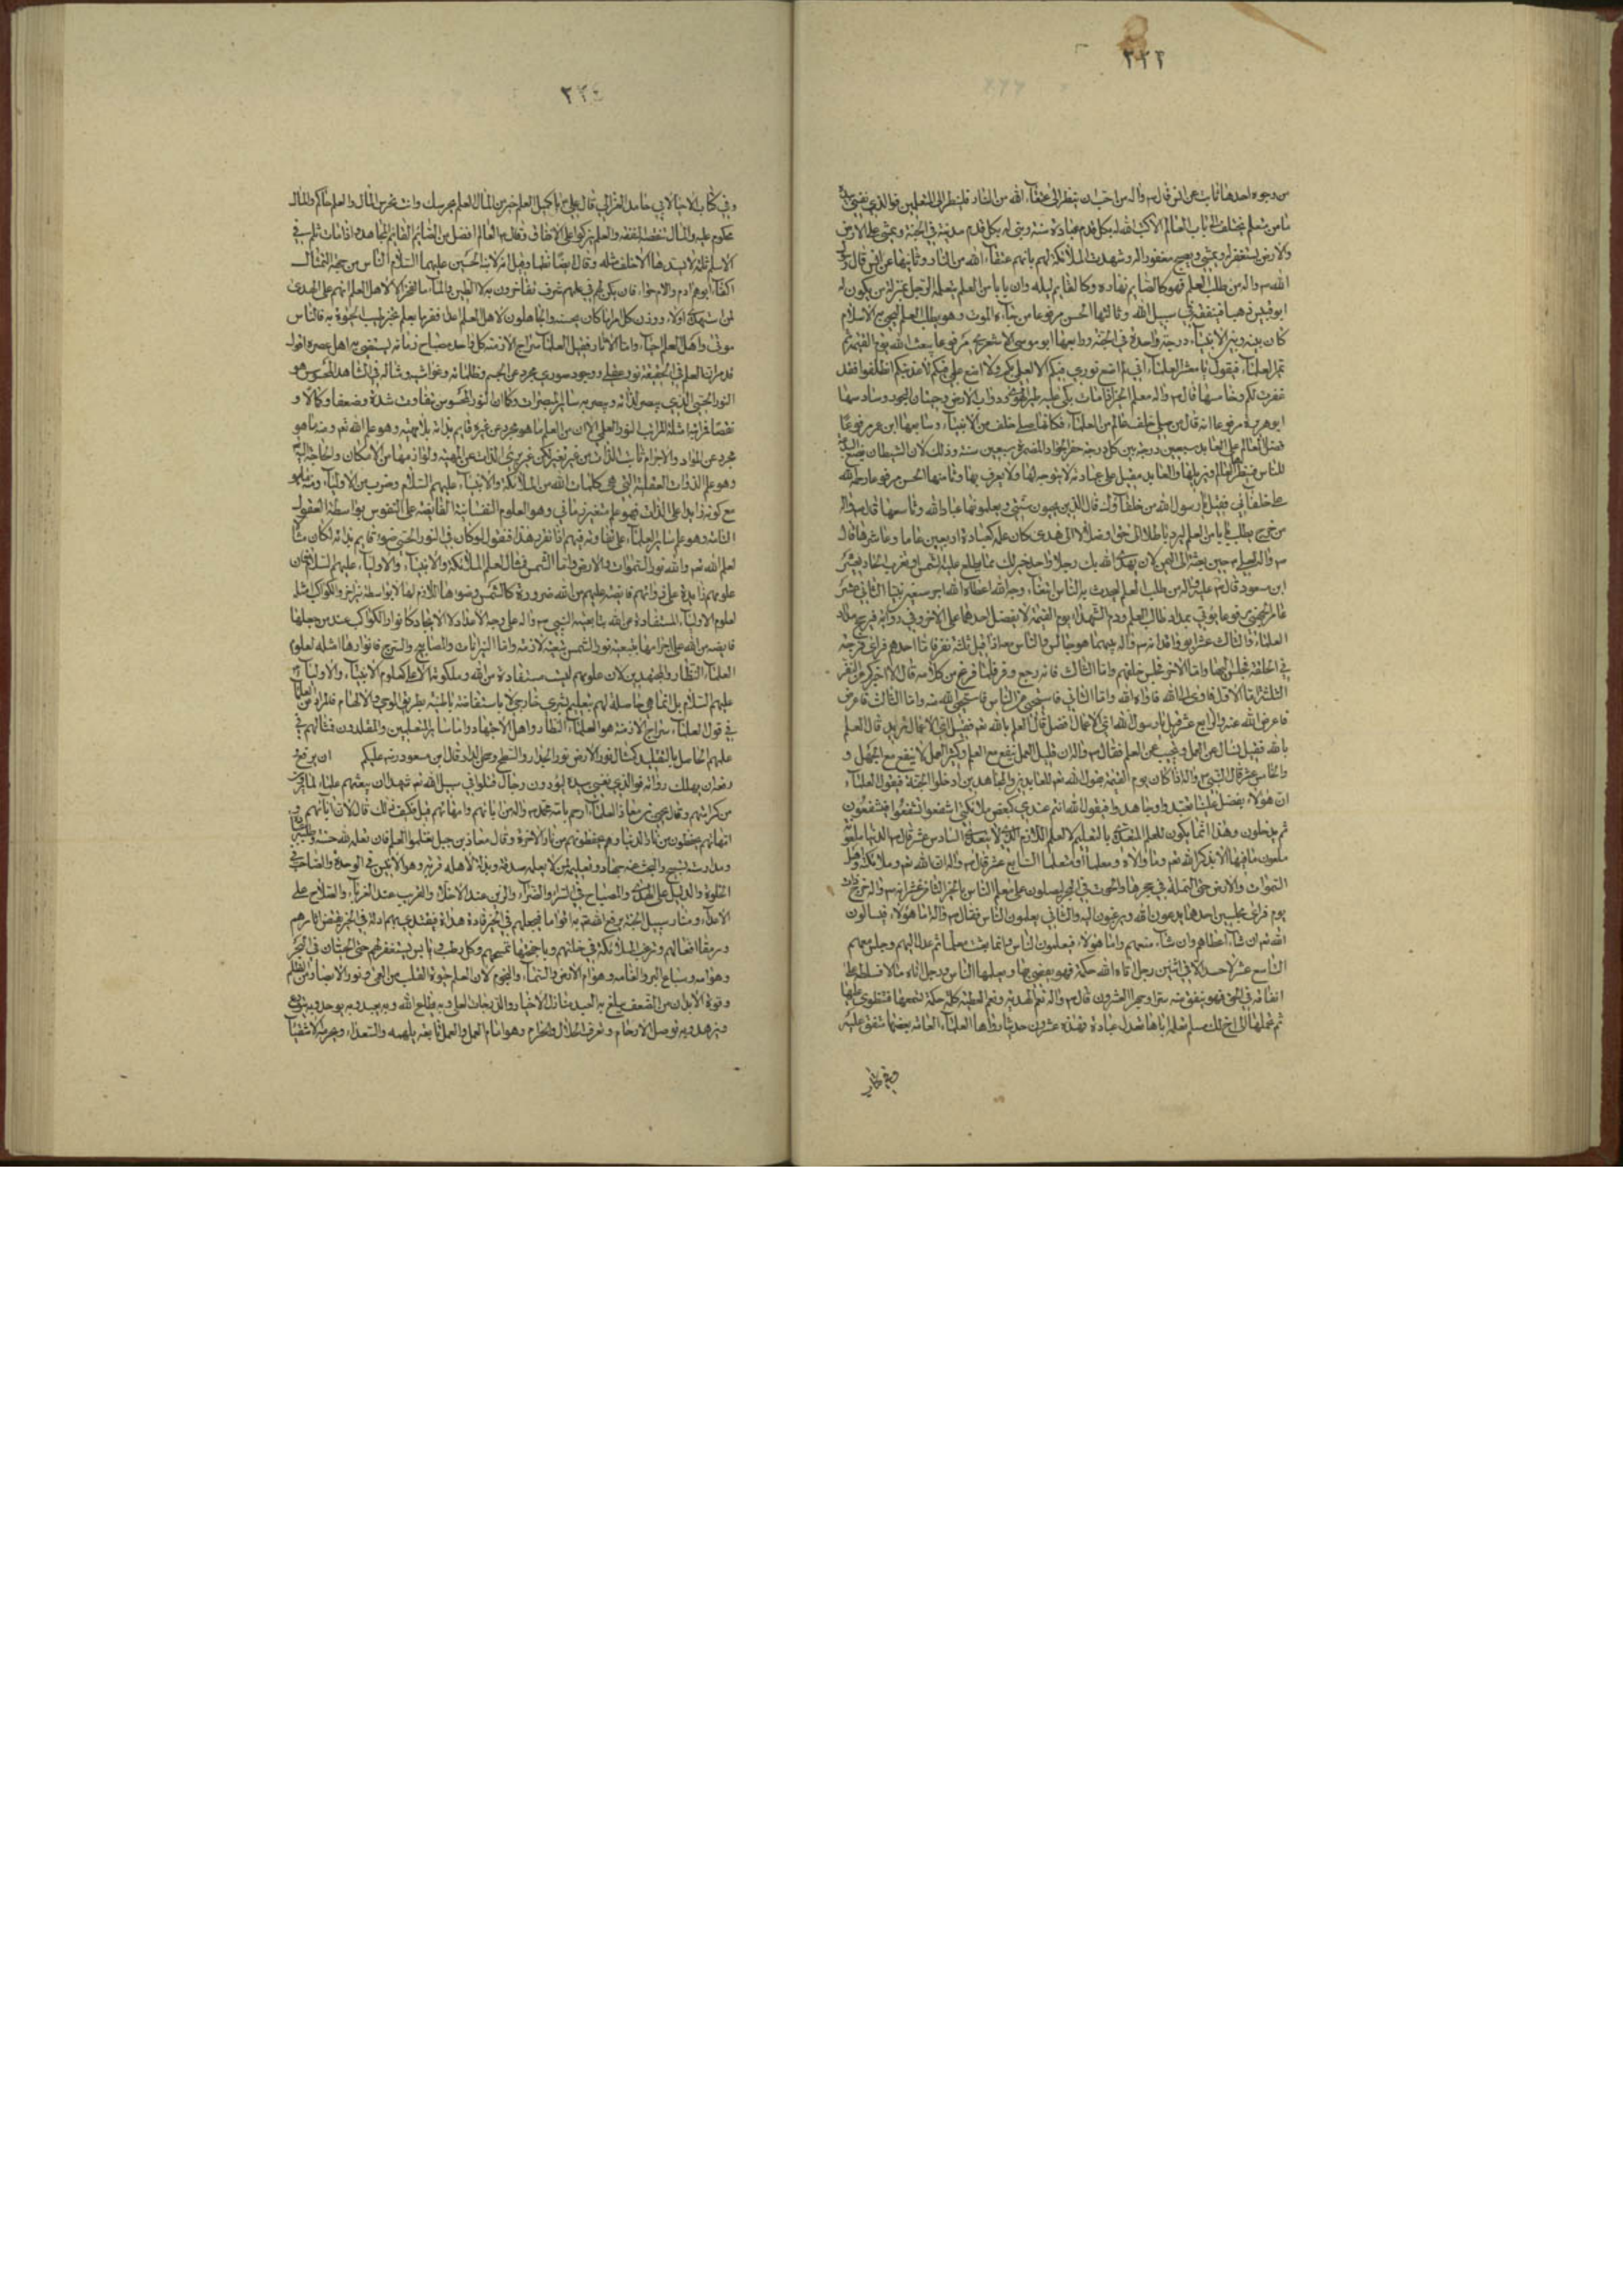 ٢٢٣
من وجوه احدها ثابت عن انس قال ص واله من احب ان ينظر الى عتقاء الله من النار فلينظر الى المتعلمين فوالذي نفسي بيده
ما من متعلم يختلف الى باب العالم الا كتب الله له بكل قدم عبادة سنة وبنى له بكل قدم مدينة في الجنة ويمشي على الارض
والارض تستغفر له ويمسي ويصبح مغفورا له وشهدت الملائكة لهم بانهم عتقاء الله من النار وثانيها عن انس قال رسول
الله ص واله من طلب العلم فهو كالصايم نهاره وكالقايم ليله وان بابا من العلم يتعلمه الرجل خير له من يكون له
ابو قبيس ذهبا فينفقه في سبيل الله وثالثها الحسن مرفوعا من جاءه الموت وهو يطلب العلم ليحيي به الاسلام
كان بينه وبين الانبياء درجة واحدة في الجنة ورابعها ابو موسى الاشعري مرفوعا يبعث الله يوم القيمة ثم
يميز العلماء فيقول يا معشر العلماء اني لم اضع نوري فيكم الا لعلمي بكم ولا اضع علمي فيكم لاعذبكم انطلقوا فقد
غفرت لكم وخامسها قال ص واله معلم الخير اذا مات بكى عليه طير الهوى ودواب الارض وحيتان البحور وسادسها
ابو هريرة مرفوعا انه قال من صلى خلف عالم من العلماء فكانما صلى خلف نبي من الانبياء وسابعها ابن عمر مرفوعا
فضل العالم على العابد سبعين درجة بين كل درجة حضر الجواد المضمر سبعين سنة وذلك لان الشيطان يضع البدعة
للناس فيبصرها العالم فيزيلها والعابد مقبل على عبادته لا يتوجه لها ولا يعرف بها وثامنها الحسن مرفوعا رحمة الله
على خلفائي فقيل يا رسول الله من خلفاؤك قال الذين يحيون سنتي ويعلمونها عباد الله وتاسعها قال ص واله
من خرج يطلب بابا من العلم ليرد باطلا الى حق او ضلالا الى هدى كان عمله كعبادة اربعين عاما وعاشرها قال
ص واله لعلي ع حين بعثه الى اليمن لان يهدى الله بك رجلا واحدا خير لك مما تطلع عليه الشمس او تغرب الحادي عشر
ابن مسعود قال ص واله من طلب العلم ليحدث به الناس ابتغاء وجه الله اعطاه الله اجر سبعين نبيا الثاني عشر
عامر الجهني مرفوعا يؤتى بمداد طالب العلم ودم الشهداء يوم القيمة لا يفضل احدهما على الاخر وفي رواية فيرجح مداد
العلماء والثالث عشر ابو واقد انه ص واله بينما هو جالس والناس معه اذ اقبل ثلثة نفر فاما احدهم فراى فرجة
في الحلقة فجلس اليها واما الاخر فجلس خلفهم واما الثالث فانه رجع وفر فلما فرغ من كلامه قال الا اخبركم عن النفر
الثلثة اما الاول فاوى الى الله فاواه الله واما الثاني فاستحيى من الناس فاستحيى الله منه واما الثالث فاعرض
فاعرض الله عنه والرابع عشر قيل يا رسول الله اي الاعمال افضل قال العلم بالله ثم قيل اي الاعمال تريد قال العلم
بالله فقيل نسال عن العمل وتجيب عن العلم فقال ص واله ان قليل العمل ينفع مع العلم وكثير العمل لا ينفع مع الجهل و
والخامس عشر قال النبي ص واله اذا كان يوم القيمة يقول الله تعم للعابدين والمجاهدين ادخلوا الجنة فيقول العلماء
ان هؤلاء بفضل علمنا تعبدوا وجاهدوا فيقول الله انتم عندي كبعض ملائكتي اشفعوا تشفعوا فيشفعون
ثم يدخلون وهذا انما يكون للعلم المتعدى بالتعليم لا العلم اللازم الذي لا يتعدى السادس عشر قال ص الدنيا ملعونة
ملعون ما فيها الا ذكر الله تعم وما والاه ومعلما او متعلما السابع عشر قال ص واله ان الله تعم وملائكته واهل
السموات والارض حتى النملة في جحرها والحوت في البحر ليصلون على معلم الناس بالخير الثامن عشر انه ص واله خرج ذات
يوم فراى مجلسين احدهما يدعون الله ويرغبون اليه والثاني يعلمون الناس فقال ص واله اما هؤلاء فيسالون
الله تعم ان شاء اعطاهم وان شاء منعهم واما هؤلاء فيعلمون الناس وانما بعثت معلما ثم عدل اليهم وجلس معهم
التاسع عشر لا حسد الا في اثنين رجل اتاه الله حكمة فهو يقضي بها ويعلمها الناس ورجل اتاه مالا فسلطه على
انفاقه في الحق فهو ينفق منه سرا وجهرا العشرون قال ص واله نعم الهدية ونعم العطية كلمة حكمة تسمعها فتطوي عليها
ثم تحملها الى اخ لك مسلم تعلمه اياها تعدل عبادة سنة فهذه عشرون حديثا رواها العلماء العامة بعضها متفق عليه
٢٢٤
وفي كتاب الاحيا لابي حامد الغزالي قال علي ع يا كميل العلم خير من المال العلم يحرسك وانت تحرس المال والعلم حاكم والمال
محكوم عليه والمال تنقصه النفقة والعلم يزكو على الانفاق وقال ع العالم افضل من الصائم القائم المجاهد واذا مات ثلم في
الاسلام ثلمة لا يسدها الا خلف مثله وقال ايضا نظما وقيل انه لابنه الحسين عليهما السلام الناس من جهة التمثال
اكفاء ابوهم ادم والام حواء فان يكن لهم في اصلهم شرف يفاخرون به فالطين والماء ما الفخر الا لاهل العلم انهم على الهدى
لمن استهدى ادلاء ووزن كل امرء ما كان يحسنه والجاهلون لاهل العلم اعداء ففز بعلم تعش حيا به فالناس
موتى واهل العلم احياء واما الاثار فقيل العلماء سراج الازمنة كل واحد مصباح زمانه يستضيء به اهل عصره اقول
قد مر ان العلم في الحقيقة نور عقلي ووجود صوري مجرد عن الجسم وظلماته وغواشيه ومثاله في الشاهد المحسوس هو
النور الحسي الذي يبصر لذاته ويبصر به ساير المبصرات وكما ان النور المحسوس يتفاوت شدة وضعفا وكمالا و
نقصا فمراتبه امثلة لمراتب النور العلمي الا ان من العلم ما هو مجرد عن غيره قايم بذاته بلا مهية وهو علم الله تعم ومنه ما هو
مجرد عن المواد والاجرام ثابت الذات من غير تغير لكن غير بري الذات عن المهية ولوازمها من الامكان والحاجة الى
وهو علم الذوات العقلية التي هي كلمات الله من الملائكة والانبياء عليهم السلام وضرب من الاولياء ومنه ما هو
مع كونه زايدا على الذات فهو علم متغير زماني وهو العلوم النفسانية الفائضة على النفوس بواسطة العقول
التامة وهو علم ساير العلماء على تفاوته فيهم اذا تقرر هذا فنقول لو كان في النور الحسي ضوء قايم بذاته لكان مثالا
لعلم الله تعم والله نور السموات والارض واما الشمس فمثال لعلم الملائكة والانبياء والاولياء عليهم السلام فان
علومهم زايدة على ذواتهم فايضة عليهم من الله ضرورة كالشمس وضوءها اللازم لها لا بواسطة نير اخر والكواكب مثلا
لعلوم الاولياء المستفادة عن الله بتابعية النبي ص واله على وجه الامداد لا الايجاد كانوار الكواكب عند من جعلها
فايضة من الله على اجرامها بتبعية نور الشمس تبعية لازمة واما النيرانات والمصابيح والسرج فانوارها امثلة لعلوم
العلماء النظار والمجتهدين لان علومهم ليست مستفادة من الله وملكوته الاعلى كعلوم الانبياء والاولياء
عليهم السلام بل انما هي حاصلة لهم بتعليم بشري خارجي لا باستفاضة باطنية بطريق الوحي والالهام فالمراد من العلماء
في قول العلماء سراج الازمنة هو العلماء النظار واهل الاجتهاد واما ساير المتعلمين والمقلدون فمثالهم في
علمهم الحاصل بالتقليد كمثال نور الارض نور الجدار والسطح ونحو ذلك وقال ابن مسعود رض عليكم
رفعه ان يهلك رواته فوالذي نفسي بيده ليودون رجال قتلوا في سبيل الله تعم شهداء ان يبعثهم علماء لما يرون
من كرامتهم وقال يحيى بن معاذ العلماء ارحم بامة محمد ص واله من ابائهم وامهاتهم قيل وكيف ذلك قال لان اباءهم و
امهاتهم يحفظون من نار الدنيا وهم يحفظونهم من نار الاخرة وقال معاذ بن جبل تعلموا العلم فان تعلمه لله حسنة
ومدارسته تسبيح والبحث عنه جهاد وتعليمه لمن لا يعلمه صدقة وبذله لاهله قربة وهو الانيس في الوحدة والصاحب في
الخلوة والدليل على الهدى والمصباح في السراء والضراء والوزير عند الاخلاء والقريب عند الغرباء والسلاح على
الاعداء ومنار سبيل الجنة يرفع الله به اقواما فيجعلهم في الخير قادة هداة يقتدى بهم ادلة في الخير تقتص اثارهم
وترمق افعالهم وترغب الملائكة في خلتهم وباجنحتها تمسحهم وكل رطب ويابس يستغفر لهم حتى الحيتان في البحر
وهوامه وسباع البر وانعامه وهوام الارض والسماء والنجوم لان العلم حيوة القلب من العمى ونور الابصار من الظلم
وقوة الابدان من الضعف يبلغ به العبد منازل الاخيار والدرجات العلى وبه يطاع الله وبه يعبد وبه يوحد وبه يتورع
وبه توصل الارحام ويعرف الحلال والحرام وهو امام العمل والعمل تابعه يلهمه السعداء ويحرمه الاشقياء